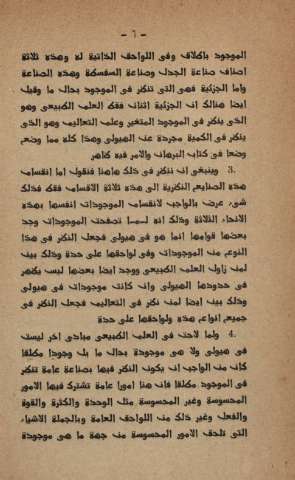 - ٦ -
الموجود باطلاق وفى اللواحق الذاتية له وهذه ثلاثة
اصناف صناعة الجدل وصناعة السفسطة وهذه الصناعة
واما الجزئية فهى التى تنظر فى الموجود بحال ما وقيل
ايضا هنالك ان الجزئية اثنان فقط العلم الطبيعى وهو
الذى ينظر فى الموجود المتغير وعلم التعاليم وهو الذى
ينظر فى الكمية مجردة عن الهيولى وهذا كله مما وضع
وضعا فى كتاب البرهان والامر فيه ظاهر
3. وينبغى ان ننظر فى ذلك هاهنا فنقول اما انقسام
هذه الصنايع النظرية الى هذه ثلاثة الاقسام فقط فذلك
شىء عرض بالواجب لانقسام الموجودات انفسها بهذه
الانحاء الثلاثة وذلك انه لـمـا تصفحت الموجودات وجد
بعضها قوامها انما هو فى هيولى فجعل النظر فى هذا
النوع من الموجودات وفى لواحقها على حدة وذلك بين
لمن زاول العلم الطبيعى ووجد ايضا بعضها ليس يظهر
فى حدودها الهيولى وان كانت موجودات فى هيولى
وذلك بين ايضا لمن نظر فى التعاليم فجعل النظر فى
جميع انواع هذه ولواحقها على حدة
4. ولما لاحت فى العلم الطبيعى مبادئ اخر ليست
فى هيولى ولا هى موجودة بحال ما بل وجودا مطلقا
كان من الواجب ان يكون النظر فيها بصناعة عامة تنظر
فى الموجود مطلقا فان هنا امورا عامة تشترك فيها الامور
المحسوسة وغير المحسوسة مثل الوحدة والكثرة والقوة
والفعل وغير ذلك من اللواحق العامة وبالجملة الاشياء
التى تلحق الامور المحسوسة من جهة ما هى موجودة